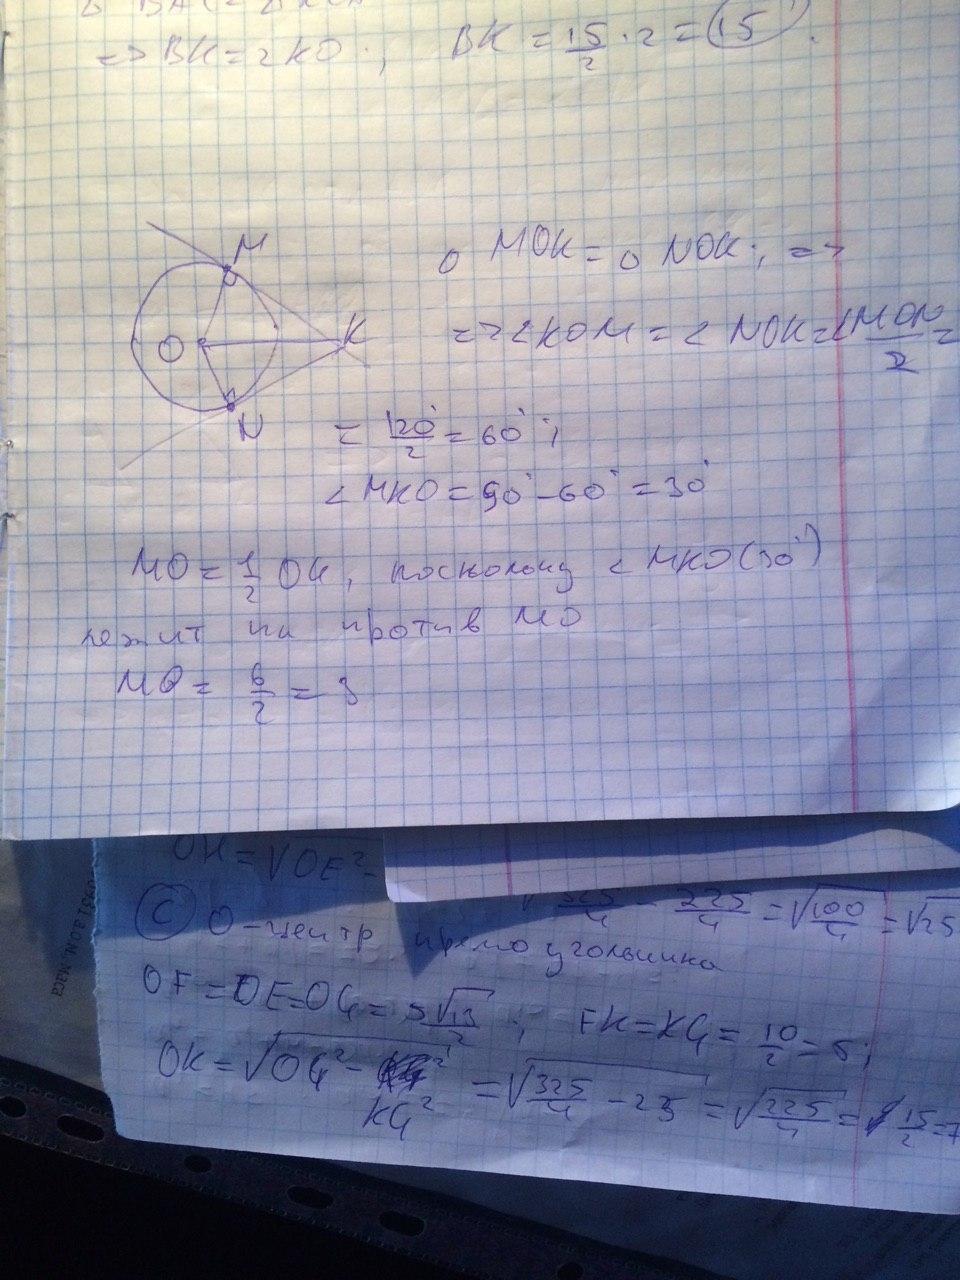 => BK = 2KO ; BK = 15/2 · 2 = 15 .
M
O
K
N
△ MOK = △ NOK ; =>
=> ∠KOM = ∠ NOK = ∠MON/2 =
= 120°/2 = 60° ;
∠ MKO = 90° - 60° = 30°
MO = 1/2 OK , поскольку ∠ MKO (30°)
лежит на против MO
MO = 6/2 = 3
OH = √OE² -
325/4 - 225/4 = √100/4 = √25
C) O - центр прямоугольника
OF = OE = OG = 5√13/2 ; FK = KG = 10/2 = 5 ;
OK = √OG² - KG² = √325/4 - 25 = √225/4 = 15/2 = 7